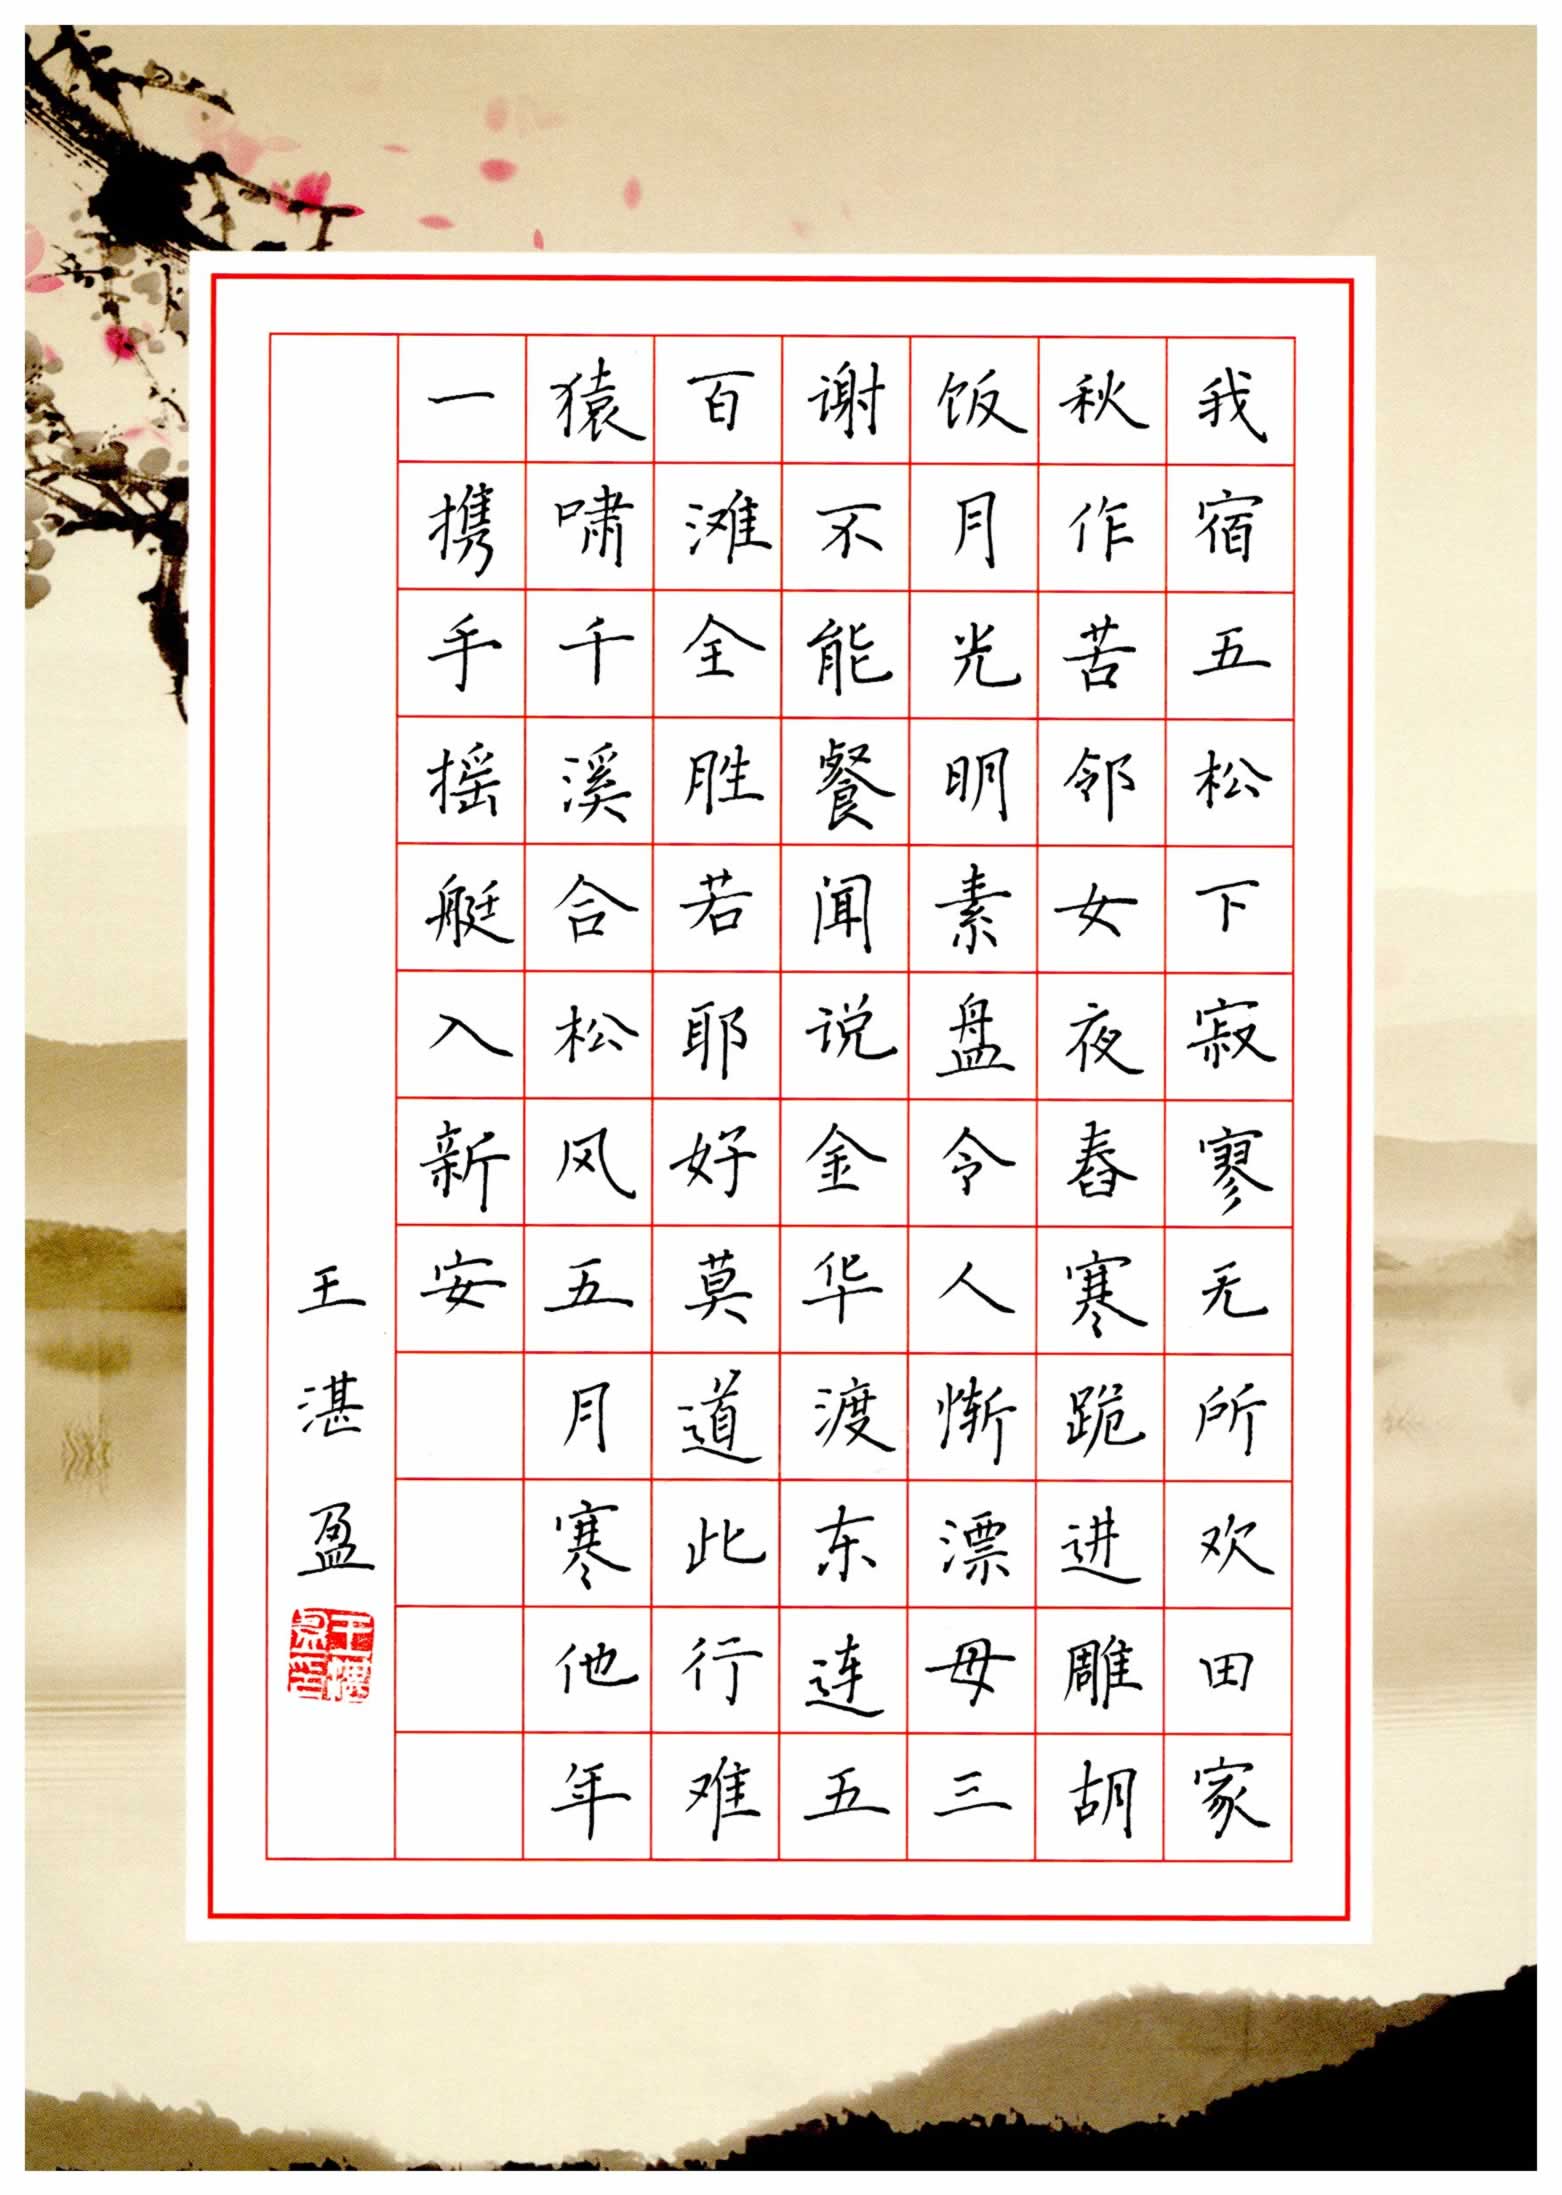 我宿五松下寂寥无所欢田家
秋作苦邻女夜舂寒跪进雕胡
饭月光明素盘令人惭漂母三
谢不能餐闻说金华渡东连五
百滩全胜若耶好莫道此行难
猿啸千溪合松风五月寒他年
一携手摇艇入新安
王湛盈